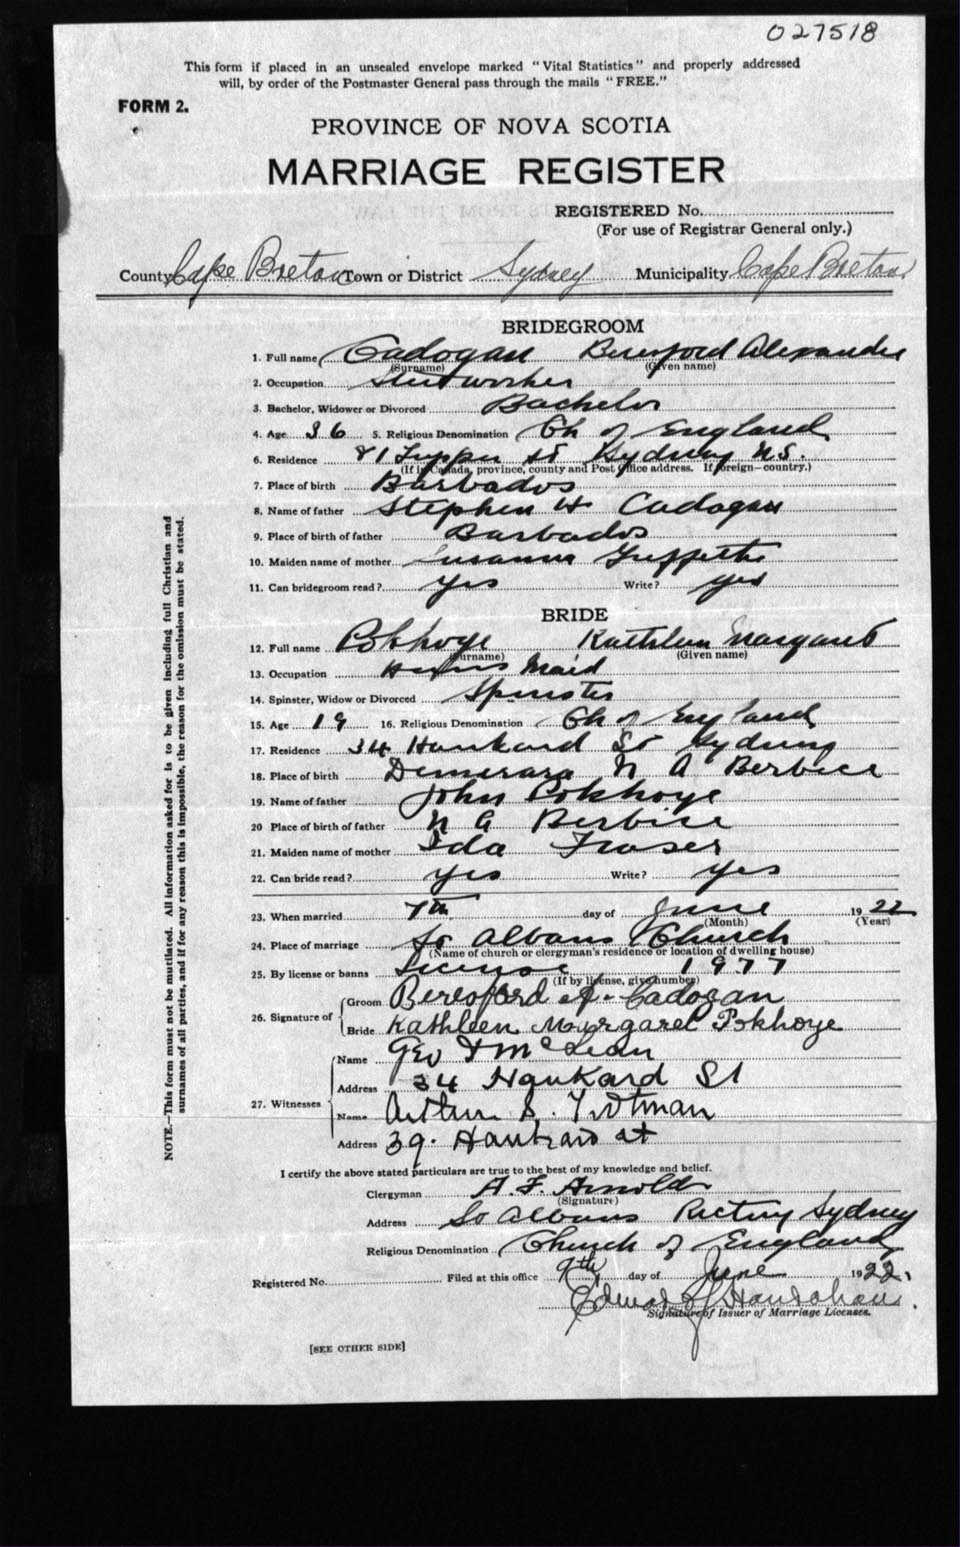 027518
This form if placed in an unsealed envelope marked "Vital Statistics" and properly addressed
will, by order of the Postmaster General pass through the mails "FREE."
FORM 2.
PROVINCE OF NOVA SCOTIA
MARRIAGE REGISTER
REGISTERED No.
(For use of Registrar General only.)
County Cape Breton Town or District Sydney Municipality Cape Breton
BRIDEGROOM
1. Full name Cadogan Beresford Alexander
(Surname) (Given name)
2. Occupation Steelworker
3. Bachelor, Widower or Divorced Bachelor
4. Age 36 5. Religious Denomination Ch of England
6. Residence 81 Tupper St Sydney N.S.
(If in Canada, province, county and Post Office address. If foreign—country.)
7. Place of birth Barbados
8. Name of father Stephen H Cadogan
9. Place of birth of father Barbados
10. Maiden name of mother Susanna Griffith
11. Can bridegroom read? yes Write? yes
BRIDE
12. Full name Pokhoye Kathleen Margaret
(Surname) (Given name)
13. Occupation Maid
14. Spinster, Widow or Divorced Spinster
15. Age 19 16. Religious Denomination Ch of England
17. Residence 34 Hankard St Sydney
18. Place of birth Demerara N A Berbice
19. Name of father John Pokhoye
20 Place of birth of father N A Berbice
21. Maiden name of mother Ida Fraser
22. Can bride read? yes Write? yes
23. When married 7th day of June 1922
(Month) (Year)
24. Place of marriage St Albans Church
(Name of church or clergyman's residence or location of dwelling house)
25. By license or banns License 1977
(If by license, give number)
26. Signature of
Groom Beresford A. Cadogan
Bride Kathleen Margaret Pokhoye
27. Witnesses
Name Geo McLean
Address 34 Hankard St
Name Arthur S. Trotman
Address 39. Hankard st
I certify the above stated particulars are true to the best of my knowledge and belief.
Clergyman A. F. Arnold
(Signature)
Address St Albans Rectory Sydney
Religious Denomination Church of England
Registered No. Filed at this office 9th day of June 1922.
Edward J Hanrahan
Signature of Issuer of Marriage Licenses.
[SEE OTHER SIDE]
NOTE.—This form must not be mutilated. All information asked for is to be given including full Christian and
surnames of all parties, and if for any reason this is impossible, the reason for the omission must be stated.